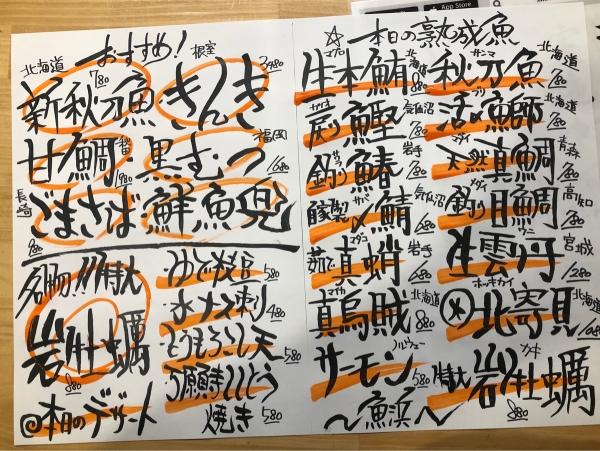 おすすめ!
北海道
新秋刀魚 780
根室
きんき 3480
甘鯛 980
福岡
黒むつ 1680
長崎
ごまさば 980
鮮魚兜
名物!!特大
岩牡蠣 880
@本日のデザート
ゆで枝豆 580
水ナス刺り 480
とうもろこし天 580
うずら
焼き 580
☆本日の熟成魚
マグロ
生本鮪 北海道 880
カツオ
戻り鰹 気仙沼 780
釣り鰆 岩手 780
サバ
〆鯖 気仙沼 680
マダコ
茹で真蛸 岩手 680
マイカ
真烏賊 北海道 880
サーモン ノルウェー 580
〜魚浜〜
サンマ
秋刀魚 北海道 780
ブリ
活〆鰤 北海道 780
マダイ
天然真鯛 青森 780
メダイ
釣り目鯛 高知 780
ウニ
生雲丹 宮城 1280
ホッキカイ
北寄貝 北海道 1080
カキ
特大岩牡蠣 880